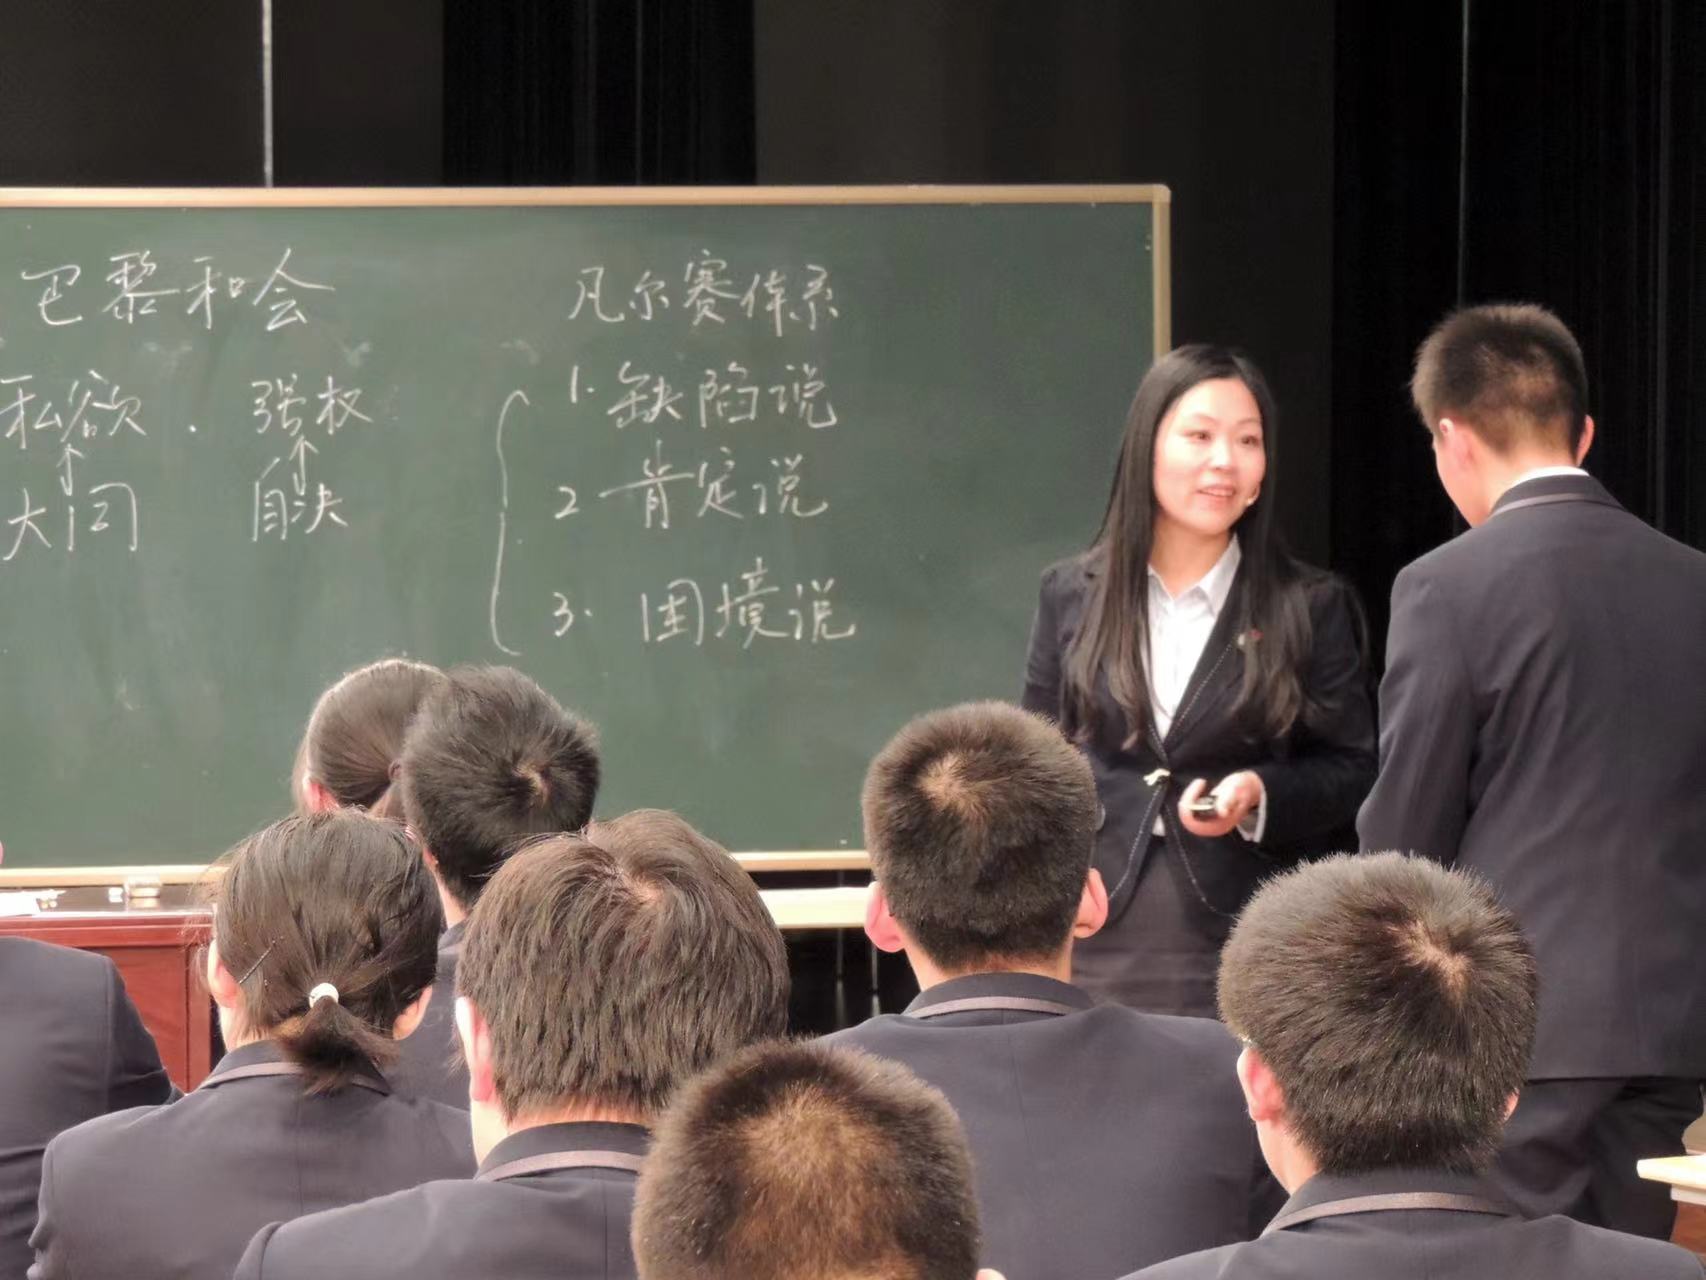 巴黎和会
私欲 . 强权
大同 自决
凡尔赛体系
1. 缺陷说
2 肯定说
3. 困境说